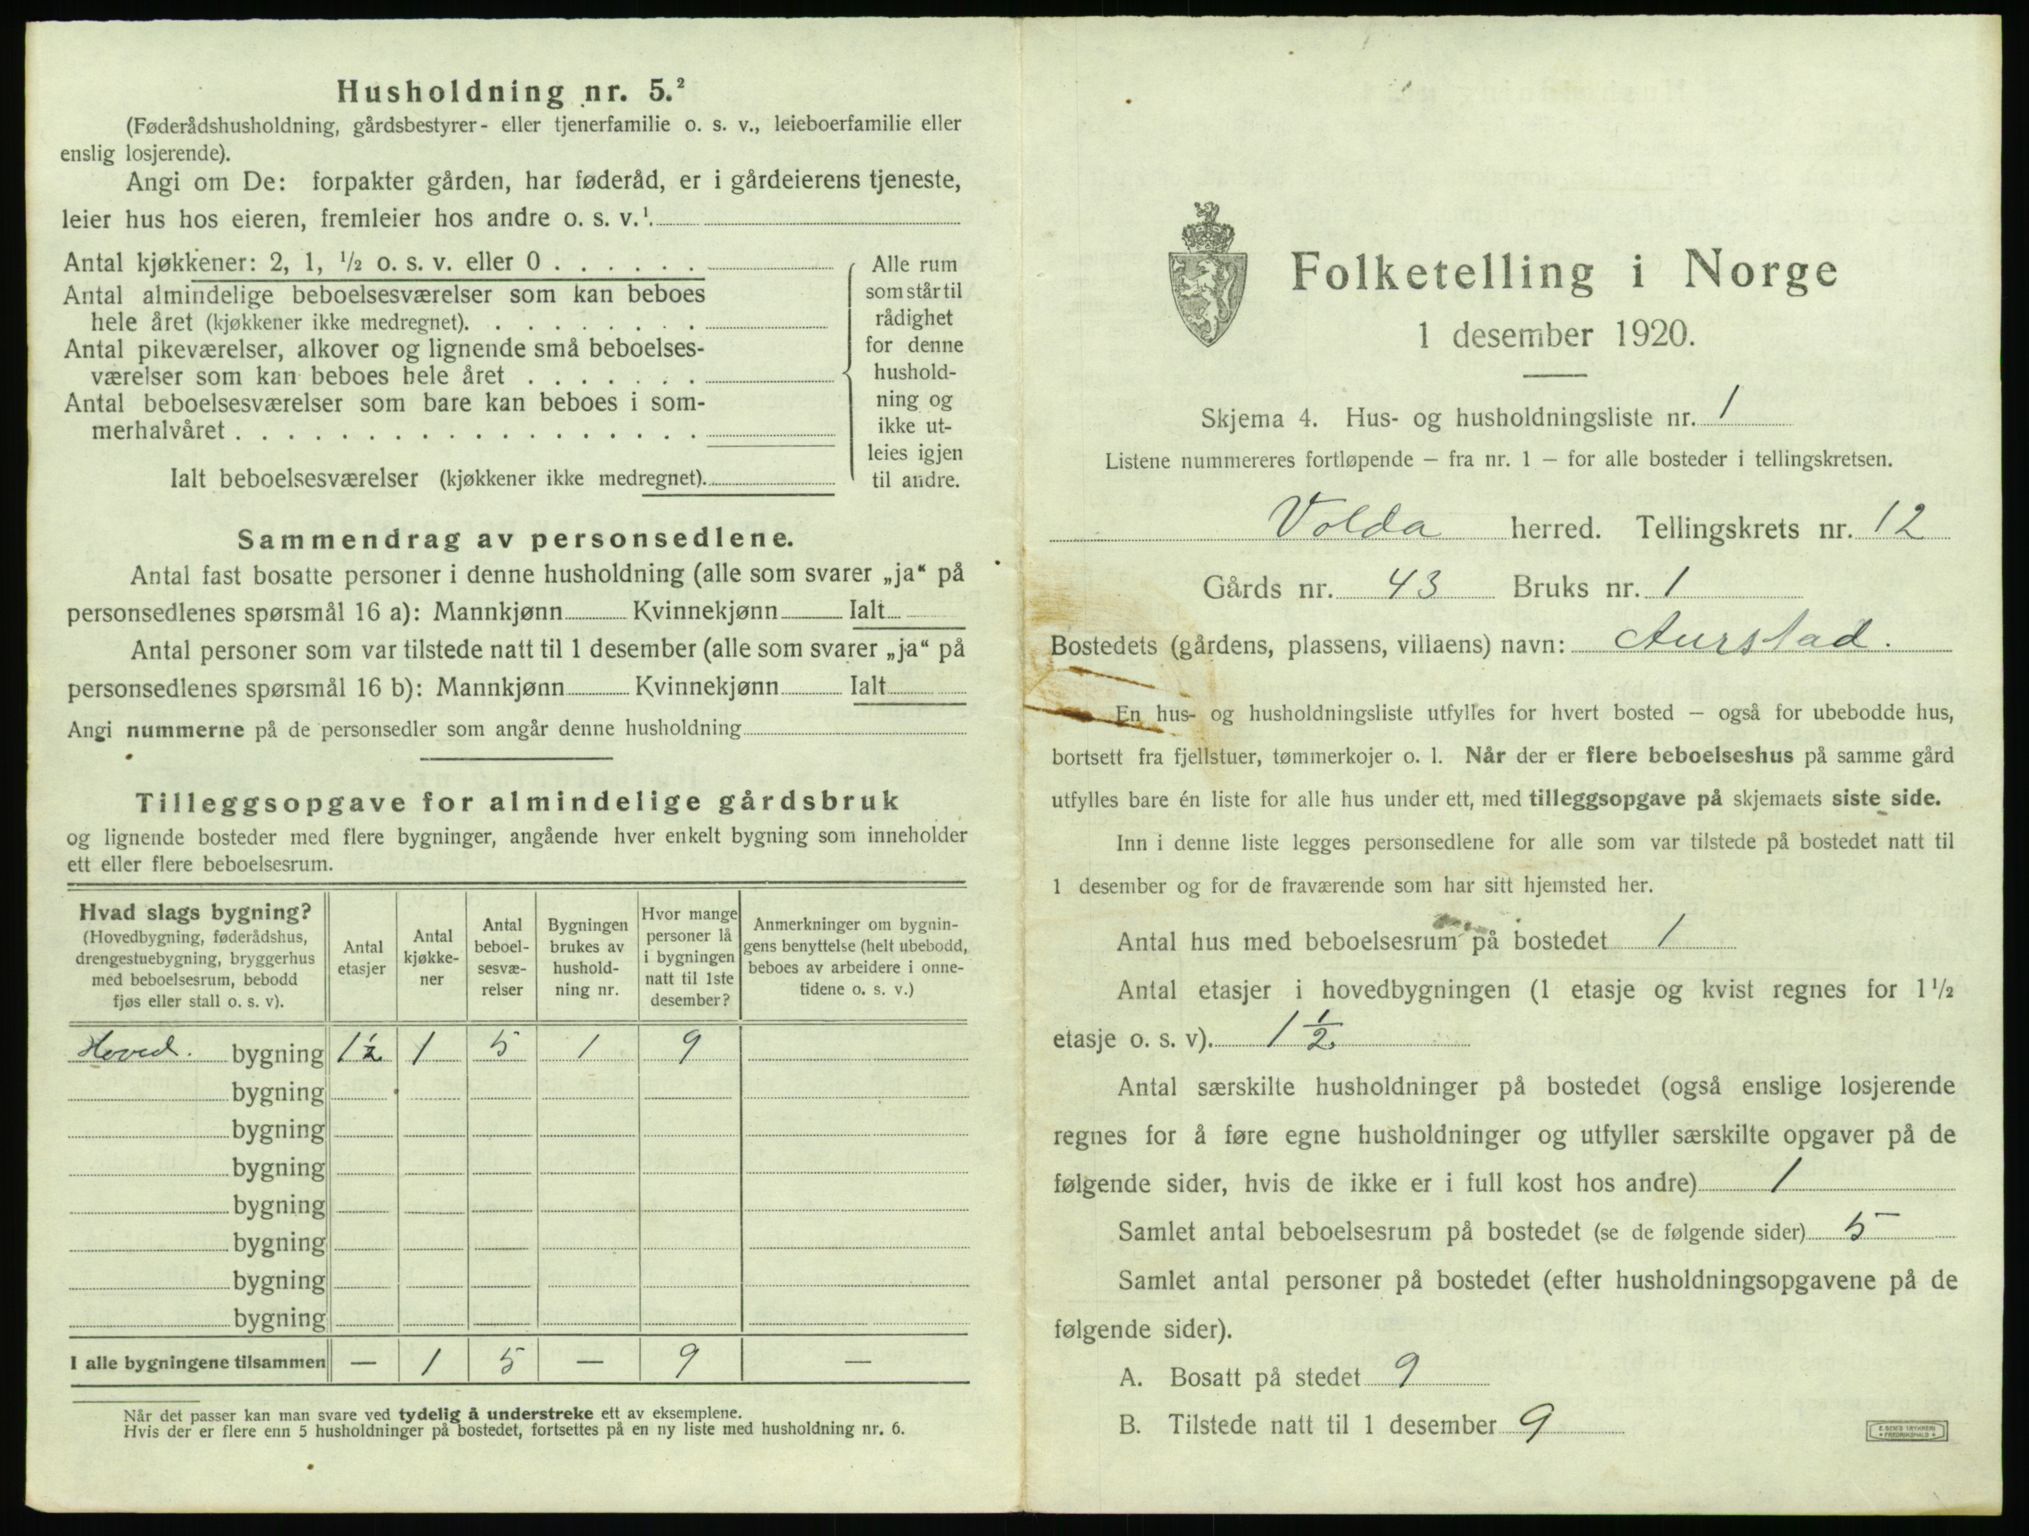 Husholdning nr. 5.²
(Føderådshusholdning, gårdsbestyrer- eller tjenerfamilie o. s. v., leieboerfamilie eller
enslig losjerende).
Angi om De: forpakter gården, har føderåd, er i gårdeierens tjeneste,
leier hus hos eieren, fremleier hos andre o. s. v.¹
Antal kjøkkener: 2, 1, ½ o. s. v. eller 0 . . . . . .
Antal almindelige beboelsesværelser som kan beboes
hele året (kjøkkener ikke medregnet). . . . . . . . .
Antal pikeværelser, alkover og lignende små beboelses-
værelser som kan beboes hele året . . . . . . .
Antal beboelsesværelser som bare kan beboes i som-
merhalvåret . . . . . . . . . . . . . . . . . .
Ialt beboelsesværelser (kjøkkener ikke medregnet).
Alle rum
som står til
rådighet
for denne
hushold-
ning og
ikke ut-
leies igjen
til andre.
Sammendrag av personsedlene.
Antal fast bosatte personer i denne husholdning (alle som svarer „ja“ på
personsedlenes spørsmål 16 a): Mannkjønn Kvinnekjønn Ialt
Antal personer som var tilstede natt til 1 desember (alle som svarer „ja“ på
personsedlenes spørsmål 16 b): Mannkjønn Kvinnekjønn Ialt
Angi nummerne på de personsedler som angår denne husholdning
Tilleggsopgave for almindelige gårdsbruk
og lignende bosteder med flere bygninger, angående hver enkelt bygning som inneholder
ett eller flere beboelsesrum.
Hvad slags bygning?
(Hovedbygning, føderådshus,
drengestuebygning, bryggerhus
med beboelsesrum, bebodd
fjøs eller stall o. s. v).
Antal
etasjer
Antal
kjøkke-
ner
Antal
beboel-
sesvæ-
relser
Bygningen
brukes av
hushold-
ning nr.
Hvor mange
personer lå
i bygningen
natt til 1ste
desember?
Anmerkninger om bygnin-
gens benyttelse (helt ubebodd,
beboes av arbeidere i onne-
tidene o. s. v.)
Hoved. bygning 1½ 1 5 1 9
bygning
bygning
bygning
bygning
bygning
bygning
bygning
I alle bygningene tilsammen — 1 5 — 9 —
Når det passer kan man svare ved tydelig å understreke ett av eksemplene.
Hvis der er flere enn 5 husholdninger på bostedet, fortsettes på en ny liste med husholdning nr. 6.
Folketelling i Norge
1 desember 1920.
Skjema 4. Hus- og husholdningsliste nr. 1
Listene nummereres fortløpende – fra nr. 1 – for alle bosteder i tellingskretsen.
Volda herred. Tellingskrets nr. 12
Gårds nr. 43 Bruks nr. 1
Bostedets (gårdens, plassens, villaens) navn: Aurstad.
En hus- og husholdningsliste utfylles for hvert bosted – også for ubebodde hus,
bortsett fra fjellstuer, tømmerkojer o. l. Når der er flere beboelseshus på samme gård
utfylles bare én liste for alle hus under ett, med tilleggsopgave på skjemaets siste side.
Inn i denne liste legges personsedlene for alle som var tilstede på bostedet natt til
1 desember og for de fraværende som har sitt hjemsted her.
Antal hus med beboelsesrum på bostedet 1
Antal etasjer i hovedbygningen (1 etasje og kvist regnes for 1½
etasje o. s. v). 1½
Antal særskilte husholdninger på bostedet (også enslige losjerende
regnes for å føre egne husholdninger og utfyller særskilte opgaver på de
følgende sider, hvis de ikke er i full kost hos andre) 1
Samlet antal beboelsesrum på bostedet (se de følgende sider) 5
Samlet antal personer på bostedet (efter husholdningsopgavene på de
følgende sider).
A. Bosatt på stedet 9
B. Tilstede natt til 1 desember 9